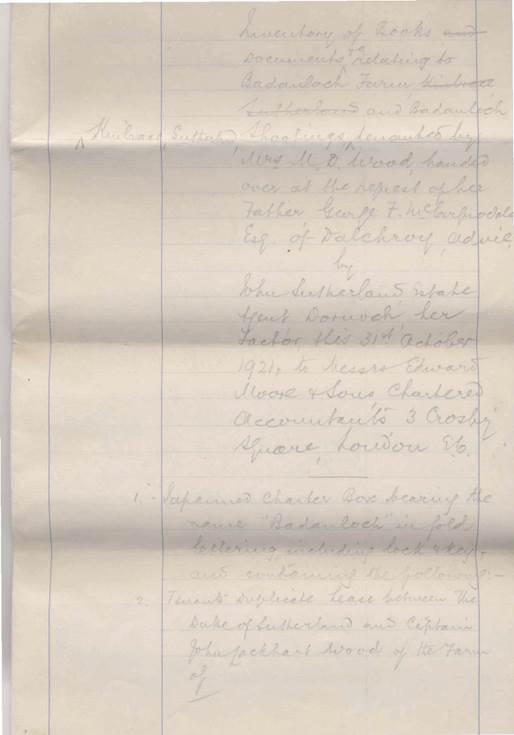 Inventory of Books and
Documents &c relating to
Badanloch Farm Kinbrace
Sutherland and Badanloch
Kinbrace, Sutherland, Shootings, tenanted by
Mrs M. D. Wood, handed
over at the request of her
Father George F. McCorquodale
Esq. of Dalchroy, Advie,
by
John Sutherland, Estate
Agent Dornoch, her
Factor, this 31st October
1921, to Messrs Edward
Moore & Sons, Chartered
Accountants 3 Crosby
Square, London E.C.
1. - Japanned Charter Box bearing the
name "Badanloch" in gold
lettering, including lock & key, -
and containing the following: -
2. Tenants Duplicate Lease between the
Duke of Sutherland and Captain
John Lockhart Wood of the Farm
of